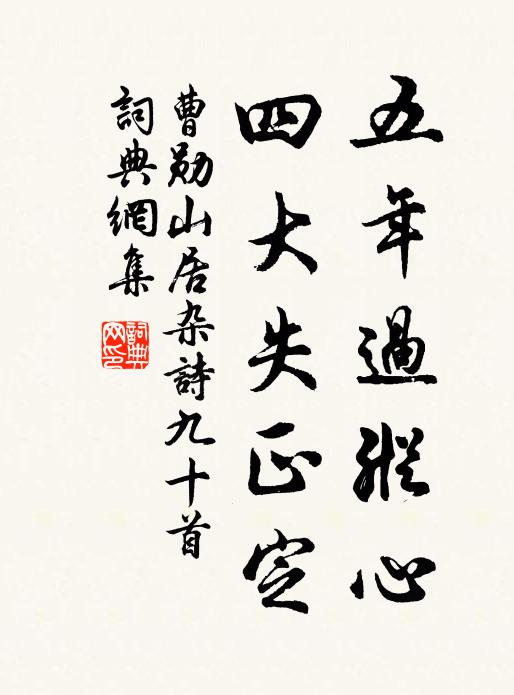 五年過縱心
四大失正定
曹勛山居杂詩九十首
詞典網集
詞典网印